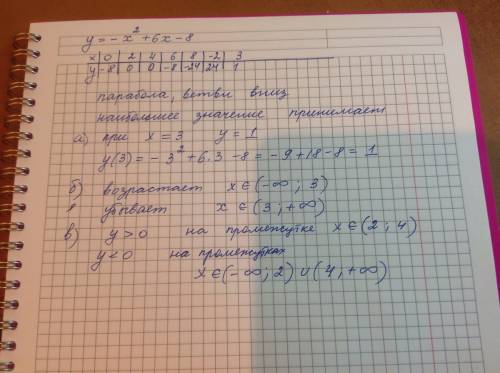 y = -x² + 6x - 8
x | 0 | 2 | 4 | 6 | 8 | -2 | 3
y | -8 | 0 | 0 | -8 | -24 | 24 | 1
парабола, ветви вниз
наибольшее значение принимает
а) при x = 3 y = 1
y(3) = - 3² + 6·3 - 8 = -9 + 18 - 8 = 1
б) возрастает x ∈ (-∞; 3)
убывает x ∈ (3; +∞)
в) y > 0 на промежутке x ∈ (2; 4)
y < 0 на промежутках
x ∈ (-∞; 2) ∪ (4; +∞)